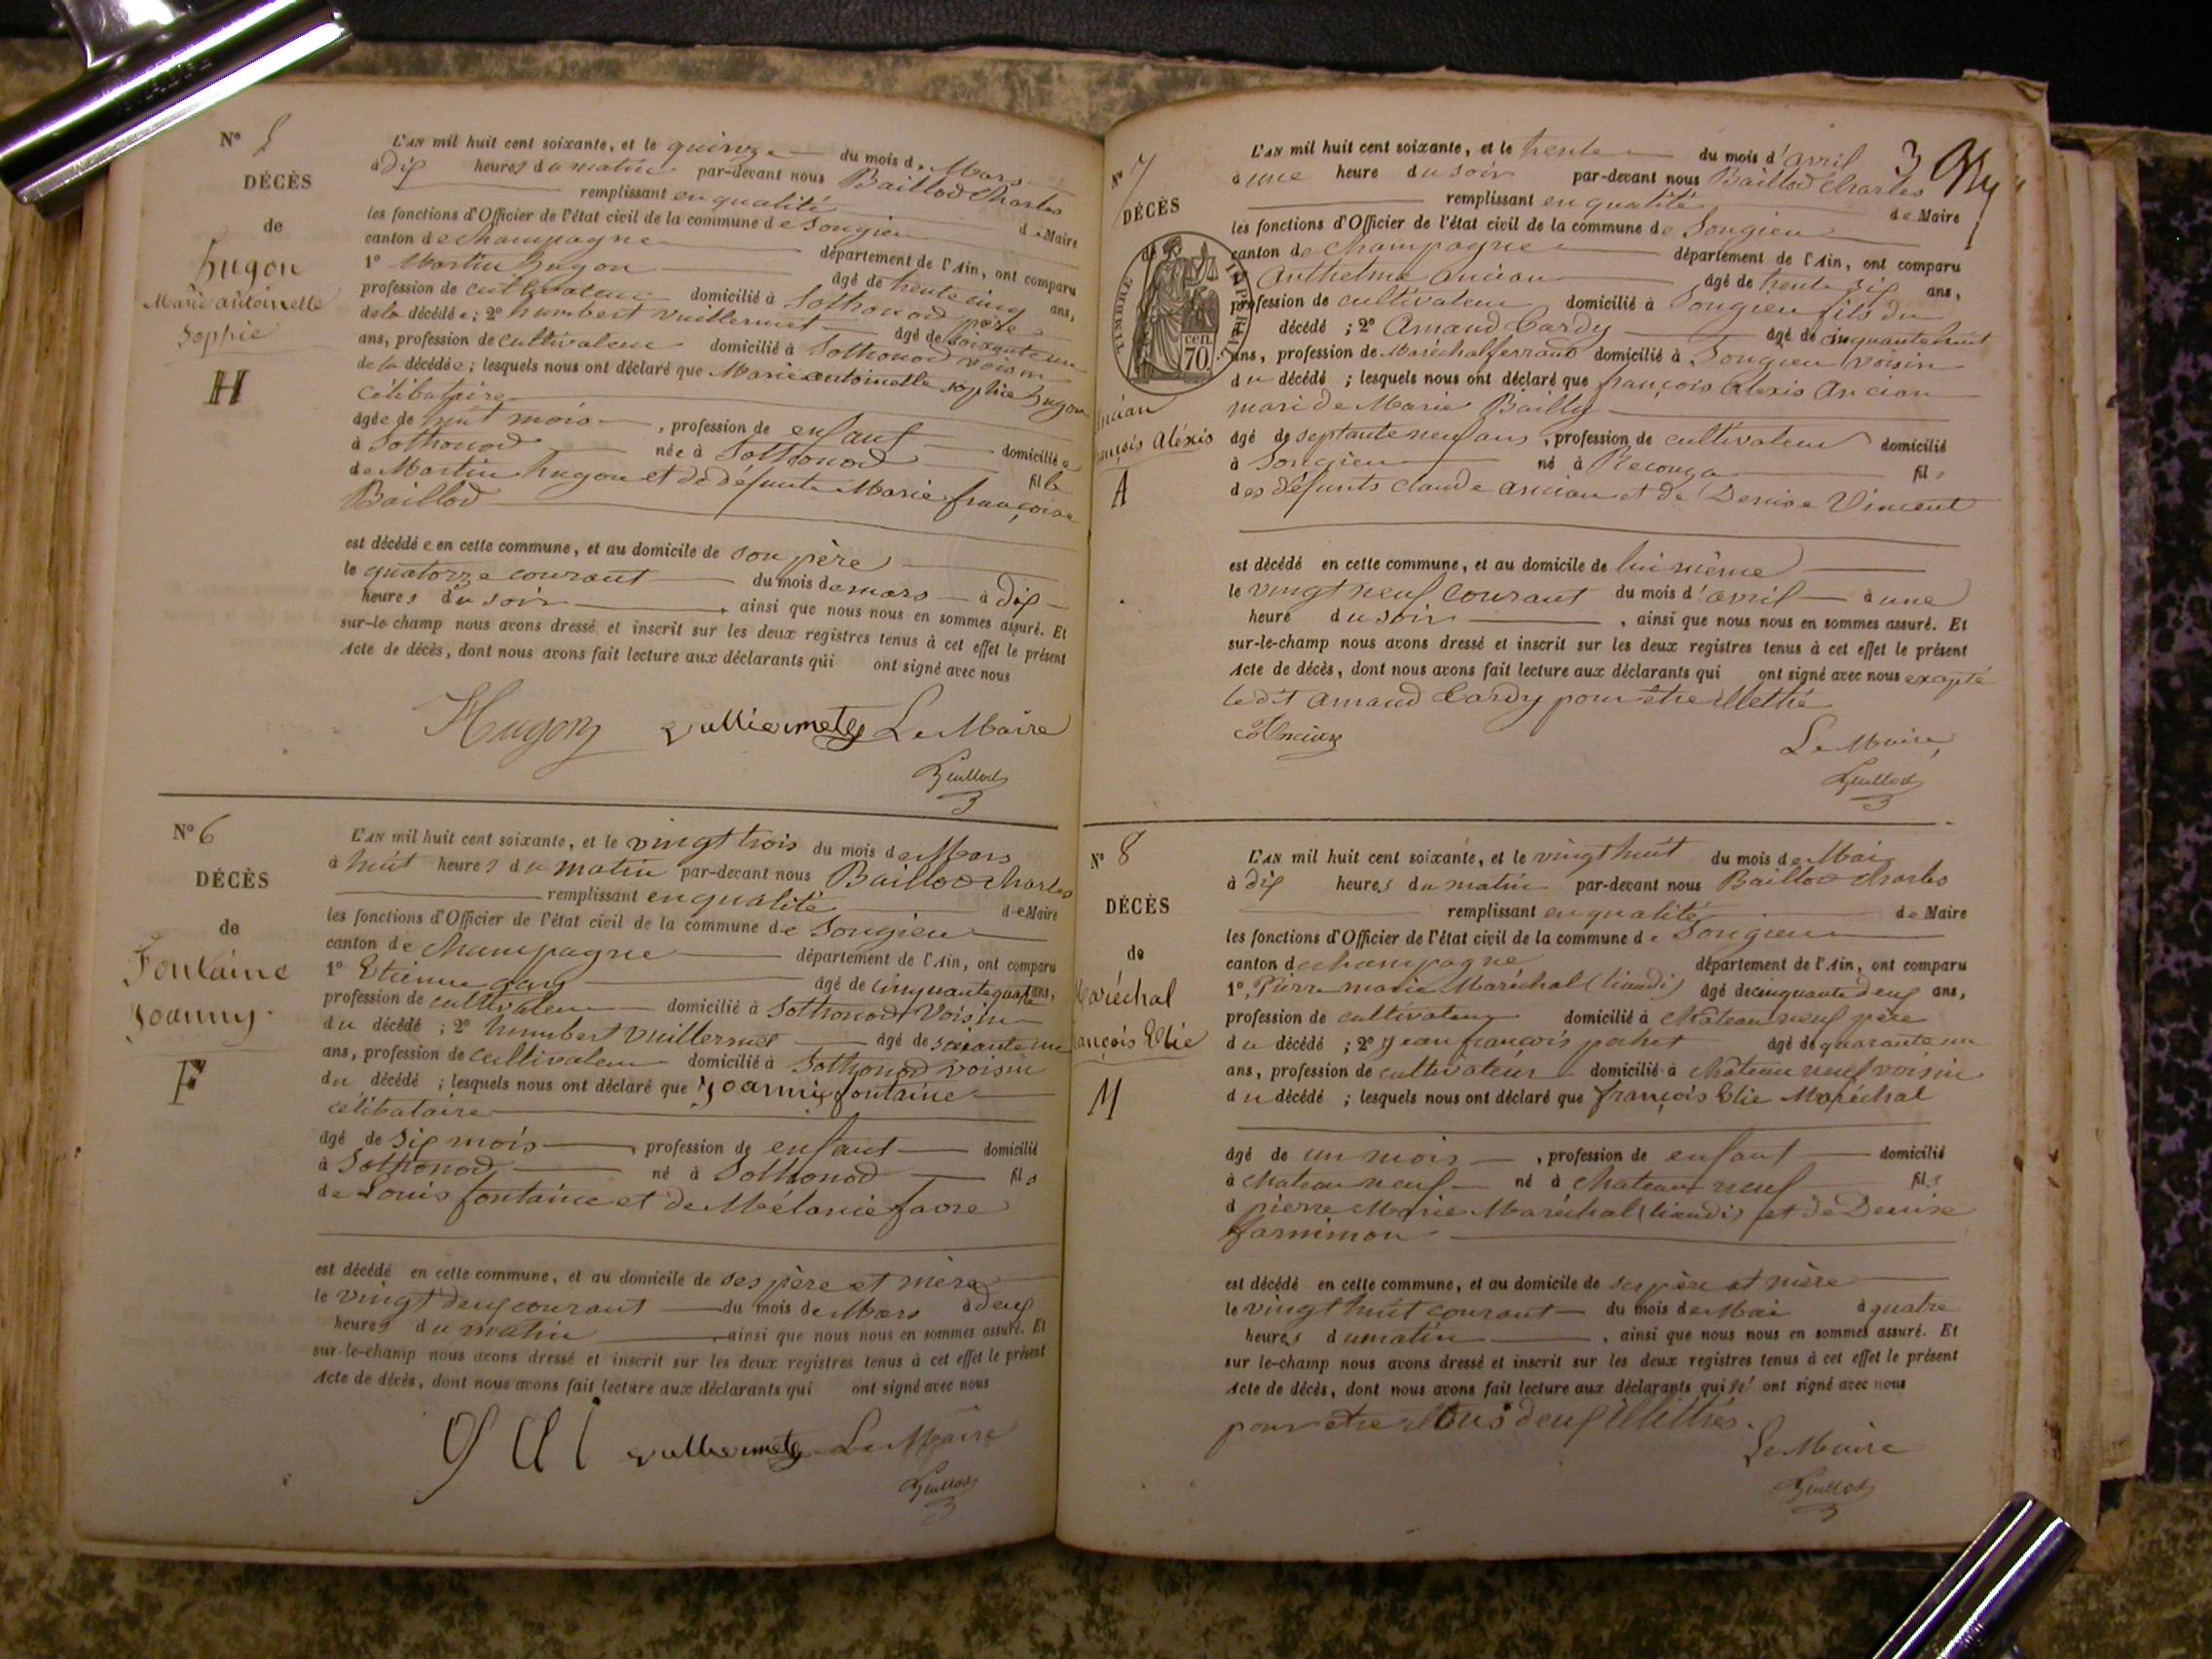 N° 5
DÉCÈS
de
hugon
Marie antoinette
Sophie
H
L'AN mil huit cent soixante, et le quinze du mois de Mars
à dix heures du matin par-devant nous Baillod Charles
remplissant en qualité de Maire
les fonctions d'Officier de l'état civil de la commune de Songieu
canton de champagne département de l'Ain, ont comparu
1° Martin hugon âgé de trente cinq ans,
profession de cultivateur domicilié à Sothonod père
de la décédée; 2° humbert vuillermet âgé de soixante un
ans, profession de cultivateur domicilié à Sothonod voisin
de la décédée; lesquels nous ont déclaré que Marie antoinette sophie hugon
célibataire
âgée de huit mois, profession de enfant domiciliée
à Sothonod née à Sothonod fille
de Martin hugon et de défunte Marie françoise
Baillod
est décédée en cette commune, et au domicile de son père
le quatorze courant du mois de mars à dix
heures du soir, ainsi que nous nous en sommes assuré. Et
sur-le-champ nous avons dressé et inscrit sur les deux registres tenus à cet effet le présent
Acte de décès, dont nous avons fait lecture aux déclarants qui ont signé avec nous
Hugon vulliermet Le Maire
Baillod
N° 6
DÉCÈS
de
Fontaine
Joanny
F
L'AN mil huit cent soixante, et le vingt trois du mois de Mars
à huit heures du matin par-devant nous Baillod Charles
remplissant en qualité de Maire
les fonctions d'Officier de l'état civil de la commune de Songieu
canton de champagne département de l'Ain, ont comparu
1° Etienne guy âgé de cinquante quatre ans,
profession de cultivateur domicilié à Sothonod Voisin
du décédé ; 2° humbert vuillermet âgé de soixante un
ans, profession de cultivateur domicilié à Sothonod voisin
du décédé ; lesquels nous ont déclaré que joanny fontaine
célibataire
âgé de six mois, profession de enfant domicilié
à Sothonod né à Sothonod fils
de Louis fontaine et de Mélanie favre
est décédé en cette commune, et au domicile de ses père et mère
le vingt deux courant du mois de Mars à deux
heures du matin, ainsi que nous nous en sommes assuré. Et
sur-le-champ nous avons dressé et inscrit sur les deux registres tenus à cet effet le présent
Acte de décès, dont nous avons fait lecture aux déclarants qui ont signé avec nous
gui vulliermet Le Maire
Baillod
3
N° 7
DÉCÈS
de
TIMBRE IMPÉRIAL
70 cen.
Ancian
François Aléxis
A
L'AN mil huit cent soixante, et le trente du mois d'avril
à une heure du soir par-devant nous Baillod Charles
remplissant en qualité de Maire
les fonctions d'Officier de l'état civil de la commune de Songieu
canton de champagne département de l'Ain, ont comparu
Anthelme ancian âgé de trente six ans,
profession de cultivateur domicilié à Songieu fils du
décédé ; 2° Amand Cardy âgé de cinquante huit
ans, profession de Maréchal ferrand domicilié à Songieu voisin
du décédé ; lesquels nous ont déclaré que françois Alexis Ancian
mari de Marie Bailly
âgé de septante neuf ans, profession de cultivateur domicilié
à Songieu né à fils
des défunts claude ancian et de Denise Vincent
est décédé en cette commune, et au domicile de lui même
le vingt neuf courant du mois d'avril à une
heure du soir, ainsi que nous nous en sommes assuré. Et
sur-le-champ nous avons dressé et inscrit sur les deux registres tenus à cet effet le présent
Acte de décès, dont nous avons fait lecture aux déclarants qui ont signé avec nous excepté
ledit Amand Cardy pour être illettré
Ancian
Le Maire,
Baillod
N° 8
DÉCÈS
de
Maréchal
François Elie
M
L'AN mil huit cent soixante, et le vingt huit du mois de Mai
à dix heures du matin par-devant nous Baillod Charles
remplissant en qualité de Maire
les fonctions d'Officier de l'état civil de la commune de Songieu
canton de champagne département de l'Ain, ont comparu
1° Pierre marie Maréchal (liaudi) âgé de cinquante deux ans,
profession de cultivateur domicilié à Châteauneuf père
du décédé ; 2° jean françois pochet âgé de quarante un
ans, profession de cultivateur domicilié à Châteauneuf voisin
du décédé ; lesquels nous ont déclaré que françois Elie Maréchal
âgé de un mois, profession de enfant domicilié
à Chateauneuf né à Chateauneuf fils
d pierre Marie Maréchal (liaudi) et de Denise
est décédé en cette commune, et au domicile de ses père et mère
le vingt huit courant du mois de Mai à quatre
heures du matin, ainsi que nous nous en sommes assuré. Et
sur le-champ nous avons dressé et inscrit sur les deux registres tenus à cet effet le présent
Acte de décès, dont nous avons fait lecture aux déclarants qui n' ont signé avec nous
pour être tous deux illettrés.
Le Maire
Baillod